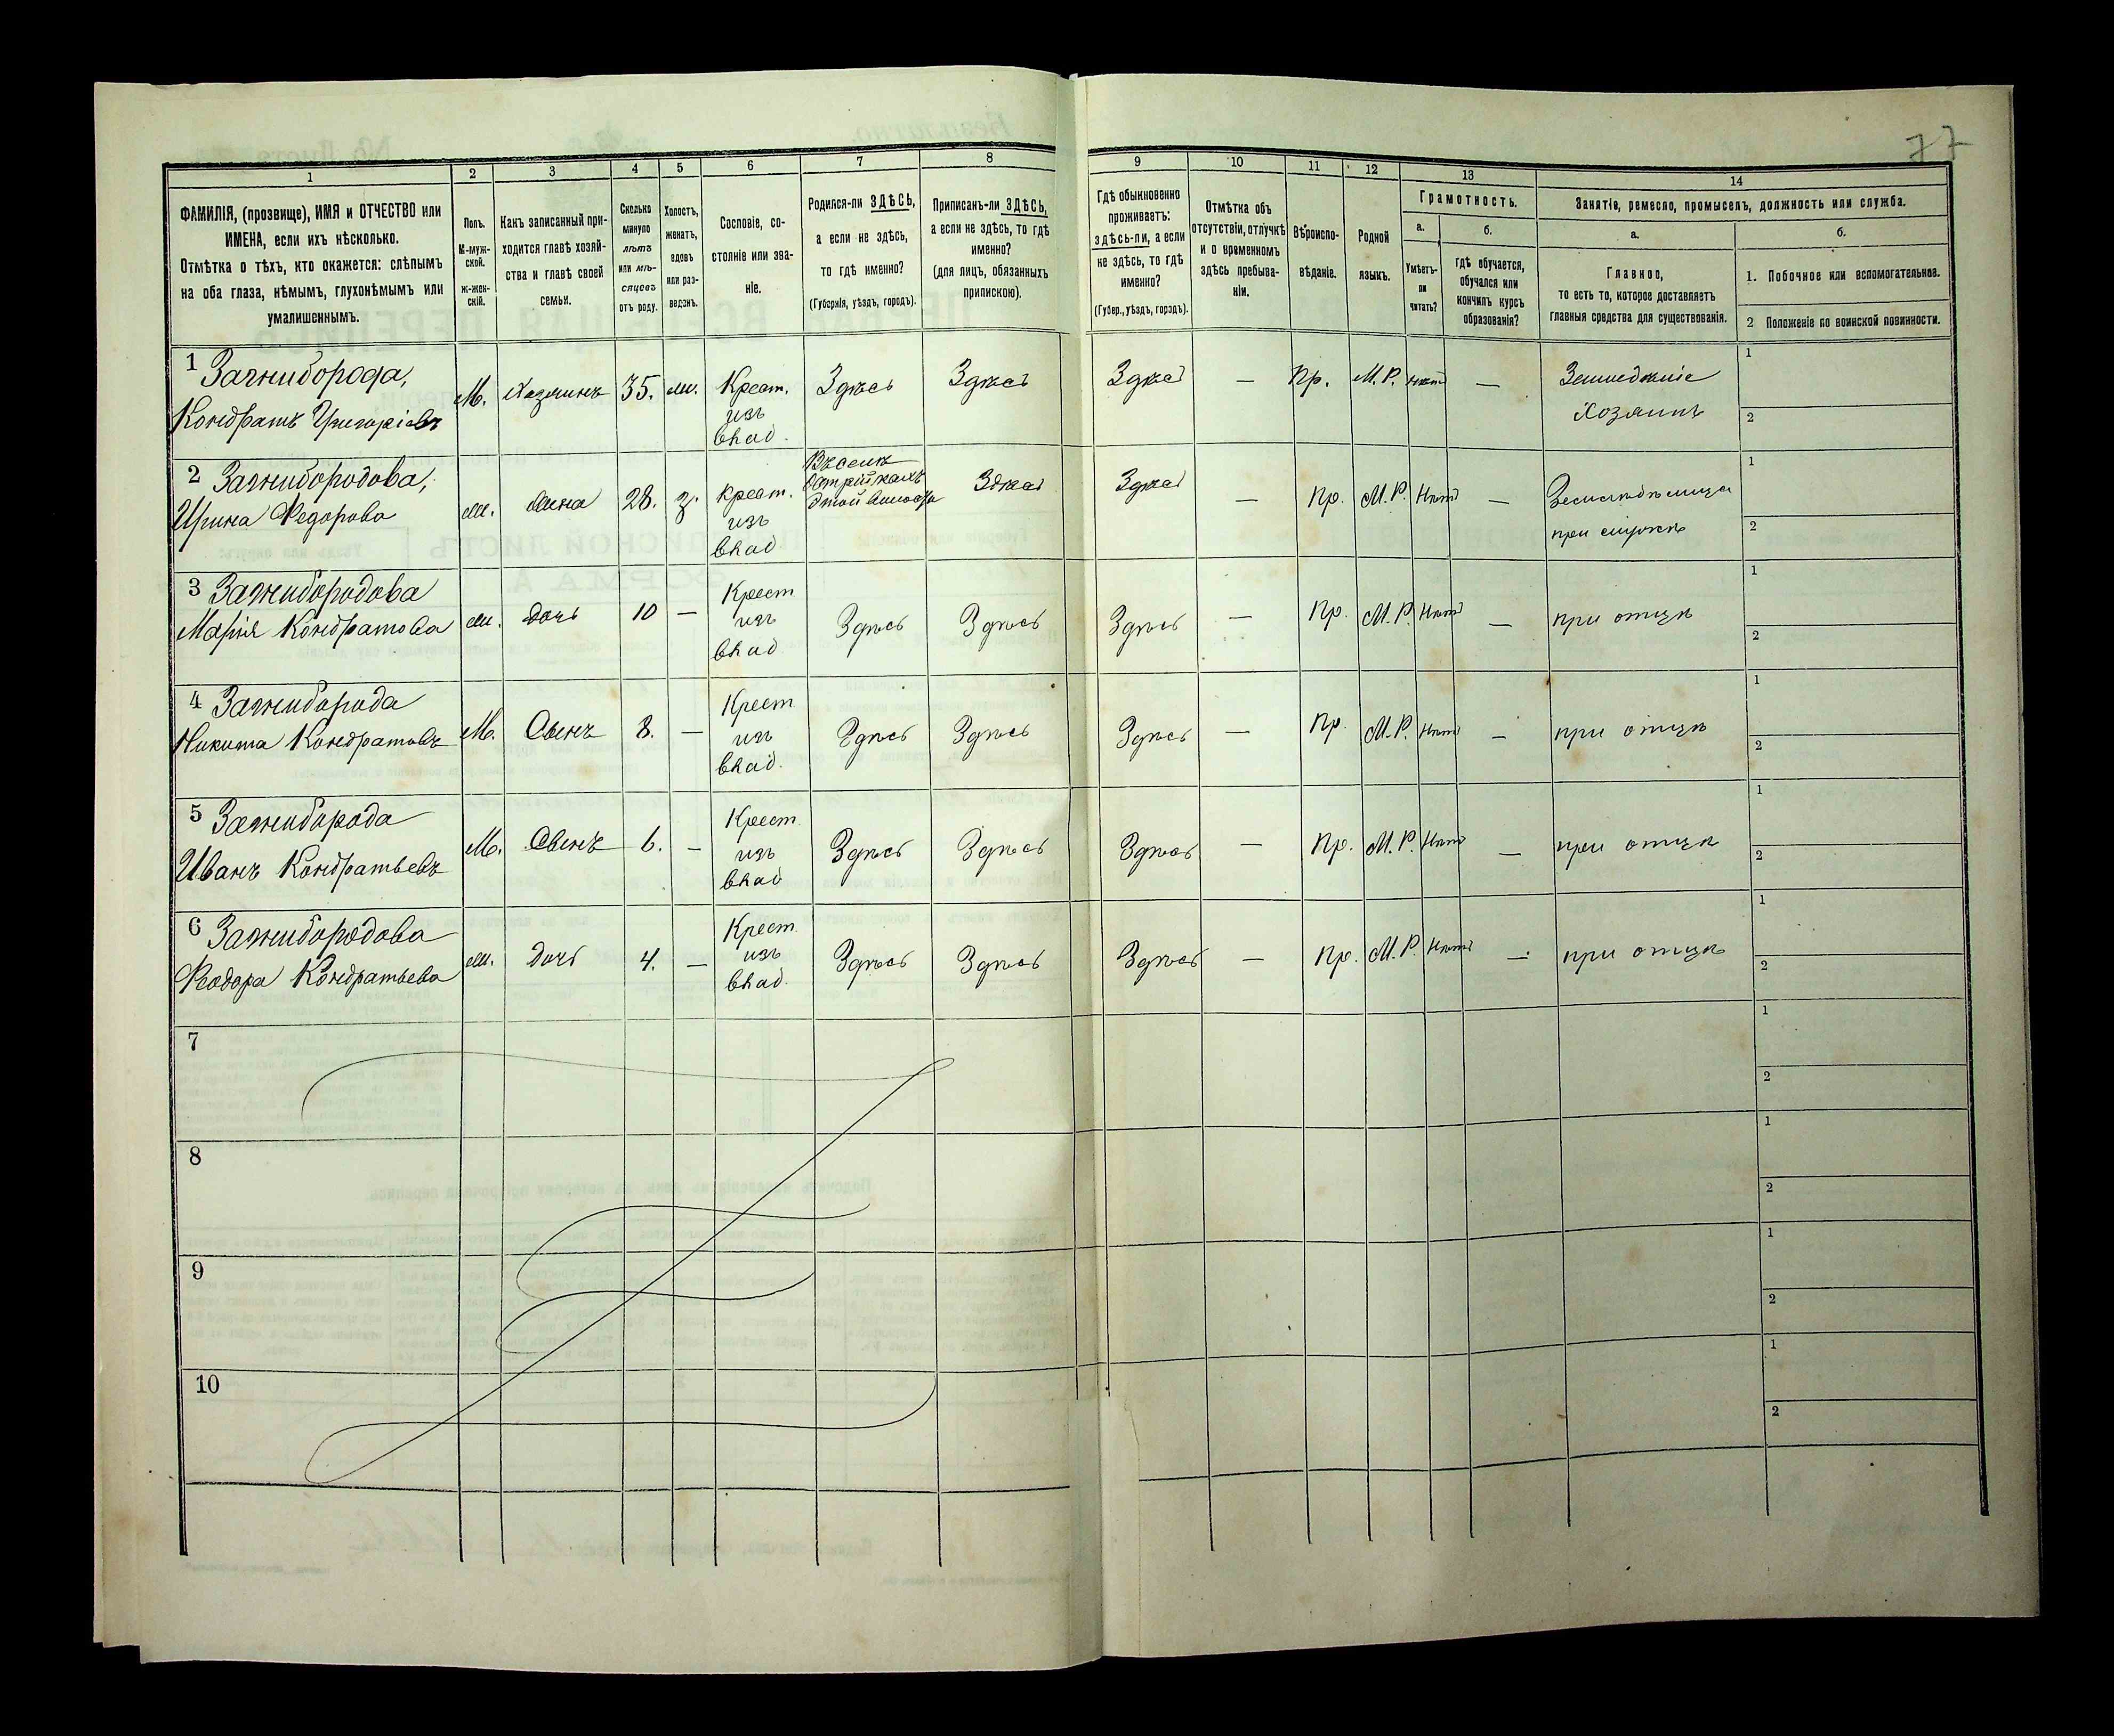 77
1 2 3 4 5 6 7 8 9 10 11 12 13 14
ФАМИЛІЯ, (прозвище), ИМЯ и ОТЧЕСТВО или
ИМЕНА, если ихъ нѣсколько.
Отмѣтка о тѣхъ, кто окажется: слѣпымъ
на оба глаза, нѣмымъ, глухонѣмымъ или
умалишеннымъ.
Полъ.
М-муж-
ской.
ж-жен-
скій.
Какъ записанный при-
ходится главѣ хозяй-
ства и главѣ своей
семьи.
Сколько
минуло
лѣтъ
или мѣ-
сяцевъ
отъ роду.
Холостъ,
женатъ,
вдовъ
или раз-
веденъ.
Сословіе, со-
стояніе или зва-
ніе.
Родился-ли ЗДѢСЬ,
а если не здѣсь,
то гдѣ именно?
(Губернія, уѣздъ, городъ).
Приписанъ-ли ЗДѢСЬ,
а если не здѣсь, то гдѣ
именно?
(для лицъ, обязанныхъ
припискою).
Гдѣ обыкновенно
проживаетъ:
здѣсь-ли, а если
не здѣсь, то гдѣ
именно?
(Губер., уѣздъ, городъ).
Отмѣтка объ
отсутствіи, отлучкѣ
и о временномъ
здѣсь пребыва-
ніи.
Вѣроиспо-
вѣданіе.
Родной
языкъ.
Грамотность.
а.
Умѣетъ-
ли
читать?
б.
Гдѣ обучается,
обучался или
кончилъ курсъ
образованія?
Занятіе, ремесло, промыселъ, должность или служба.
а.
Главное,
то есть то, которое доставляетъ
главныя средства для существованія.
б.
1. Побочное или вспомогательное.
2 Положеніе по воинской повинности.
1 Загниборода,
Кондратъ Григоріевъ
М. Хозяинъ 35. ж. Крест. изъ влад. Здѣсь Здѣсь Здѣсь — Пр. М. Р. нѣтъ — Земледѣліе
Хозяинъ
1
2
2 Загнибородова,
Ирина Федорова
ж. жена 28. з. крест. изъ влад Здѣсь Здѣсь — Пр. М. Р. Нѣтъ —
при мужѣ
1
2
3 Загнибородова
Марія Кондратова
ж. дочь 10 — Крест изъ влад Здѣсь Здѣсь Здѣсь — Пр. М. Р. Нѣтъ — при отцѣ
1
2
4 Загниборода
Никита Кондратовъ
М. Сынъ 8. — Крест изъ влад. Здѣсь Здѣсь Здѣсь — Пр. М. Р. Нѣтъ — при отцѣ
1
2
5 Загниборода
Иванъ Кондратьевъ
М. Сынъ 6. — Крест. изъ влад Здѣсь Здѣсь Здѣсь — Пр. М. Р. Нѣтъ — при отцѣ
1
2
6 Загнибородова
Федора Кондратьева
ж. дочь 4. — Крест. изъ влад. Здѣсь Здѣсь Здѣсь — Пр. М. Р. Нѣтъ — при отцѣ
1
2
7
1
2
8
1
2
9
1
2
10
1
2